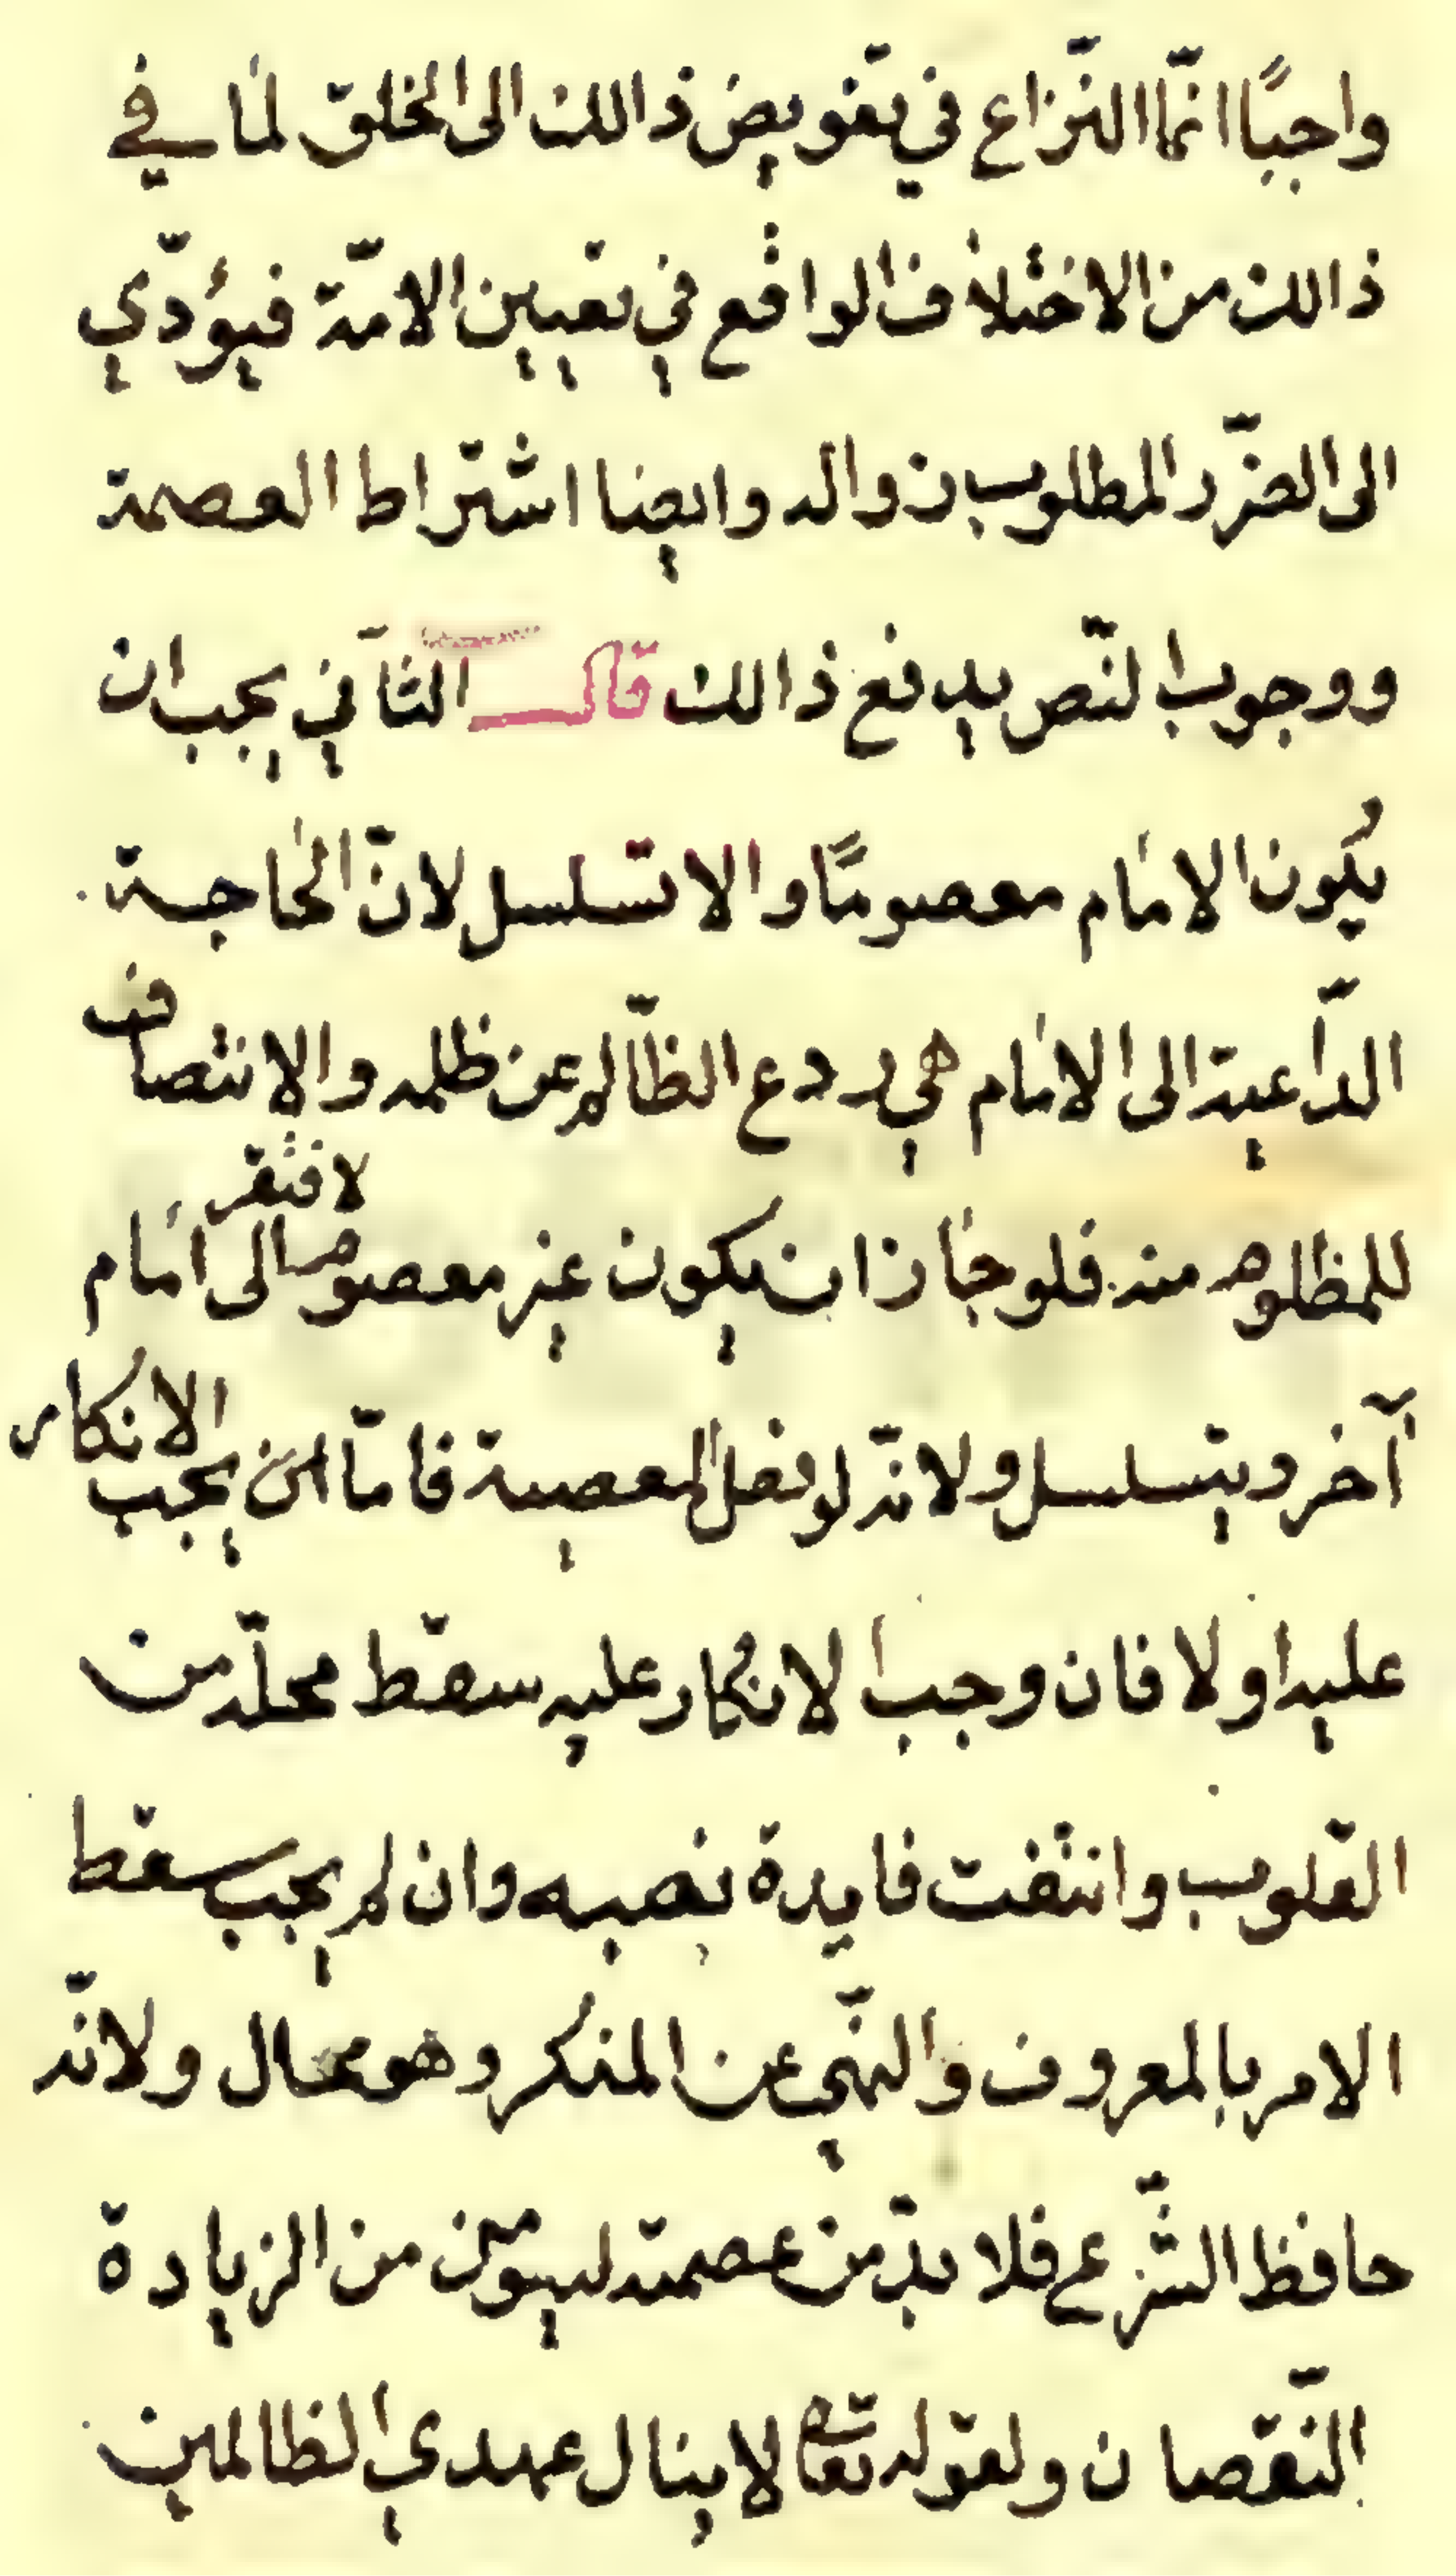 واجبًا انّما النّزاع في تفويض ذالك الى الخلق لما في
ذالك من الاختلاف الواقع في تعيين الامّة فيؤدّي
الى الضّرر المطلوب زواله وايضا اشتراط العصمة
ووجوب النّص يدفع ذالك قال الثاني يجب ان
يكون الامام معصومًا والا تسلسل لانّ الحاجة
الدّاعية الى الامام هي ردع الظّالم عن ظلمه والانتصاف
للمظلوم منه فلو جاز ان يكون غير معصوم لافتقر الى امام
آخر ويتسلسل ولانّه لو فعل المعصية فامّا ان يجب الانكار
عليه اولا فان وجب الانكار عليه سقط محلّه من
القلوب وانتفت فايدة نصبه وان لم يجب سقط
الامر بالمعروف والنّهي عن المنكر وهو محال ولانّه
حافظ الشّرع فلا بدّ من عصمته ليؤمن من الزيادة
النّقصان ولقوله تعالى لا ينال عهدي الظالمين